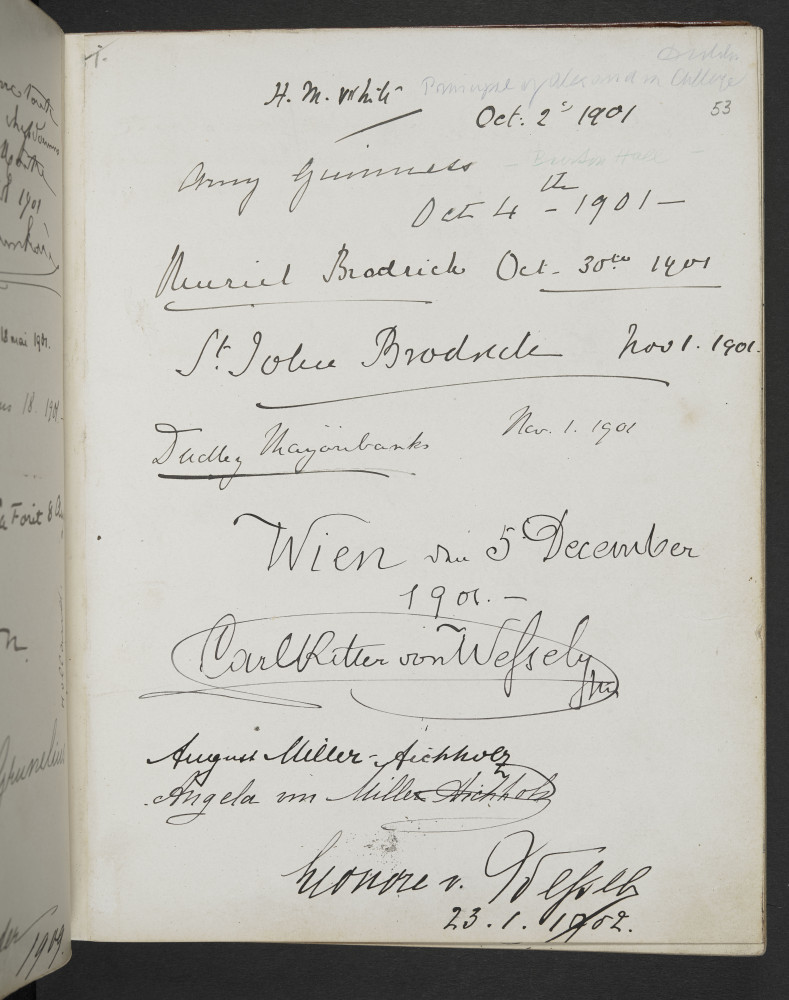 Dublin
H. M. White Principal of Alexandra College
Oct: 2d 1901
53
Amy Guinness
Oct 4th - 1901 -
Muriel Brodrick Oct. 30th 1901
St. John Brodrick Nov 1. 1901.
Dudley Marjoribanks Nov. 1. 1901
Wien den 5 December
1901. -
Carl Ritter von Weſsely
August Miller-Aichholz
Angela von Miller Aichholz
Leonore v. Weſsely
23. 1. 1902.
18 mai 1901.
18. 1901
1901
1909